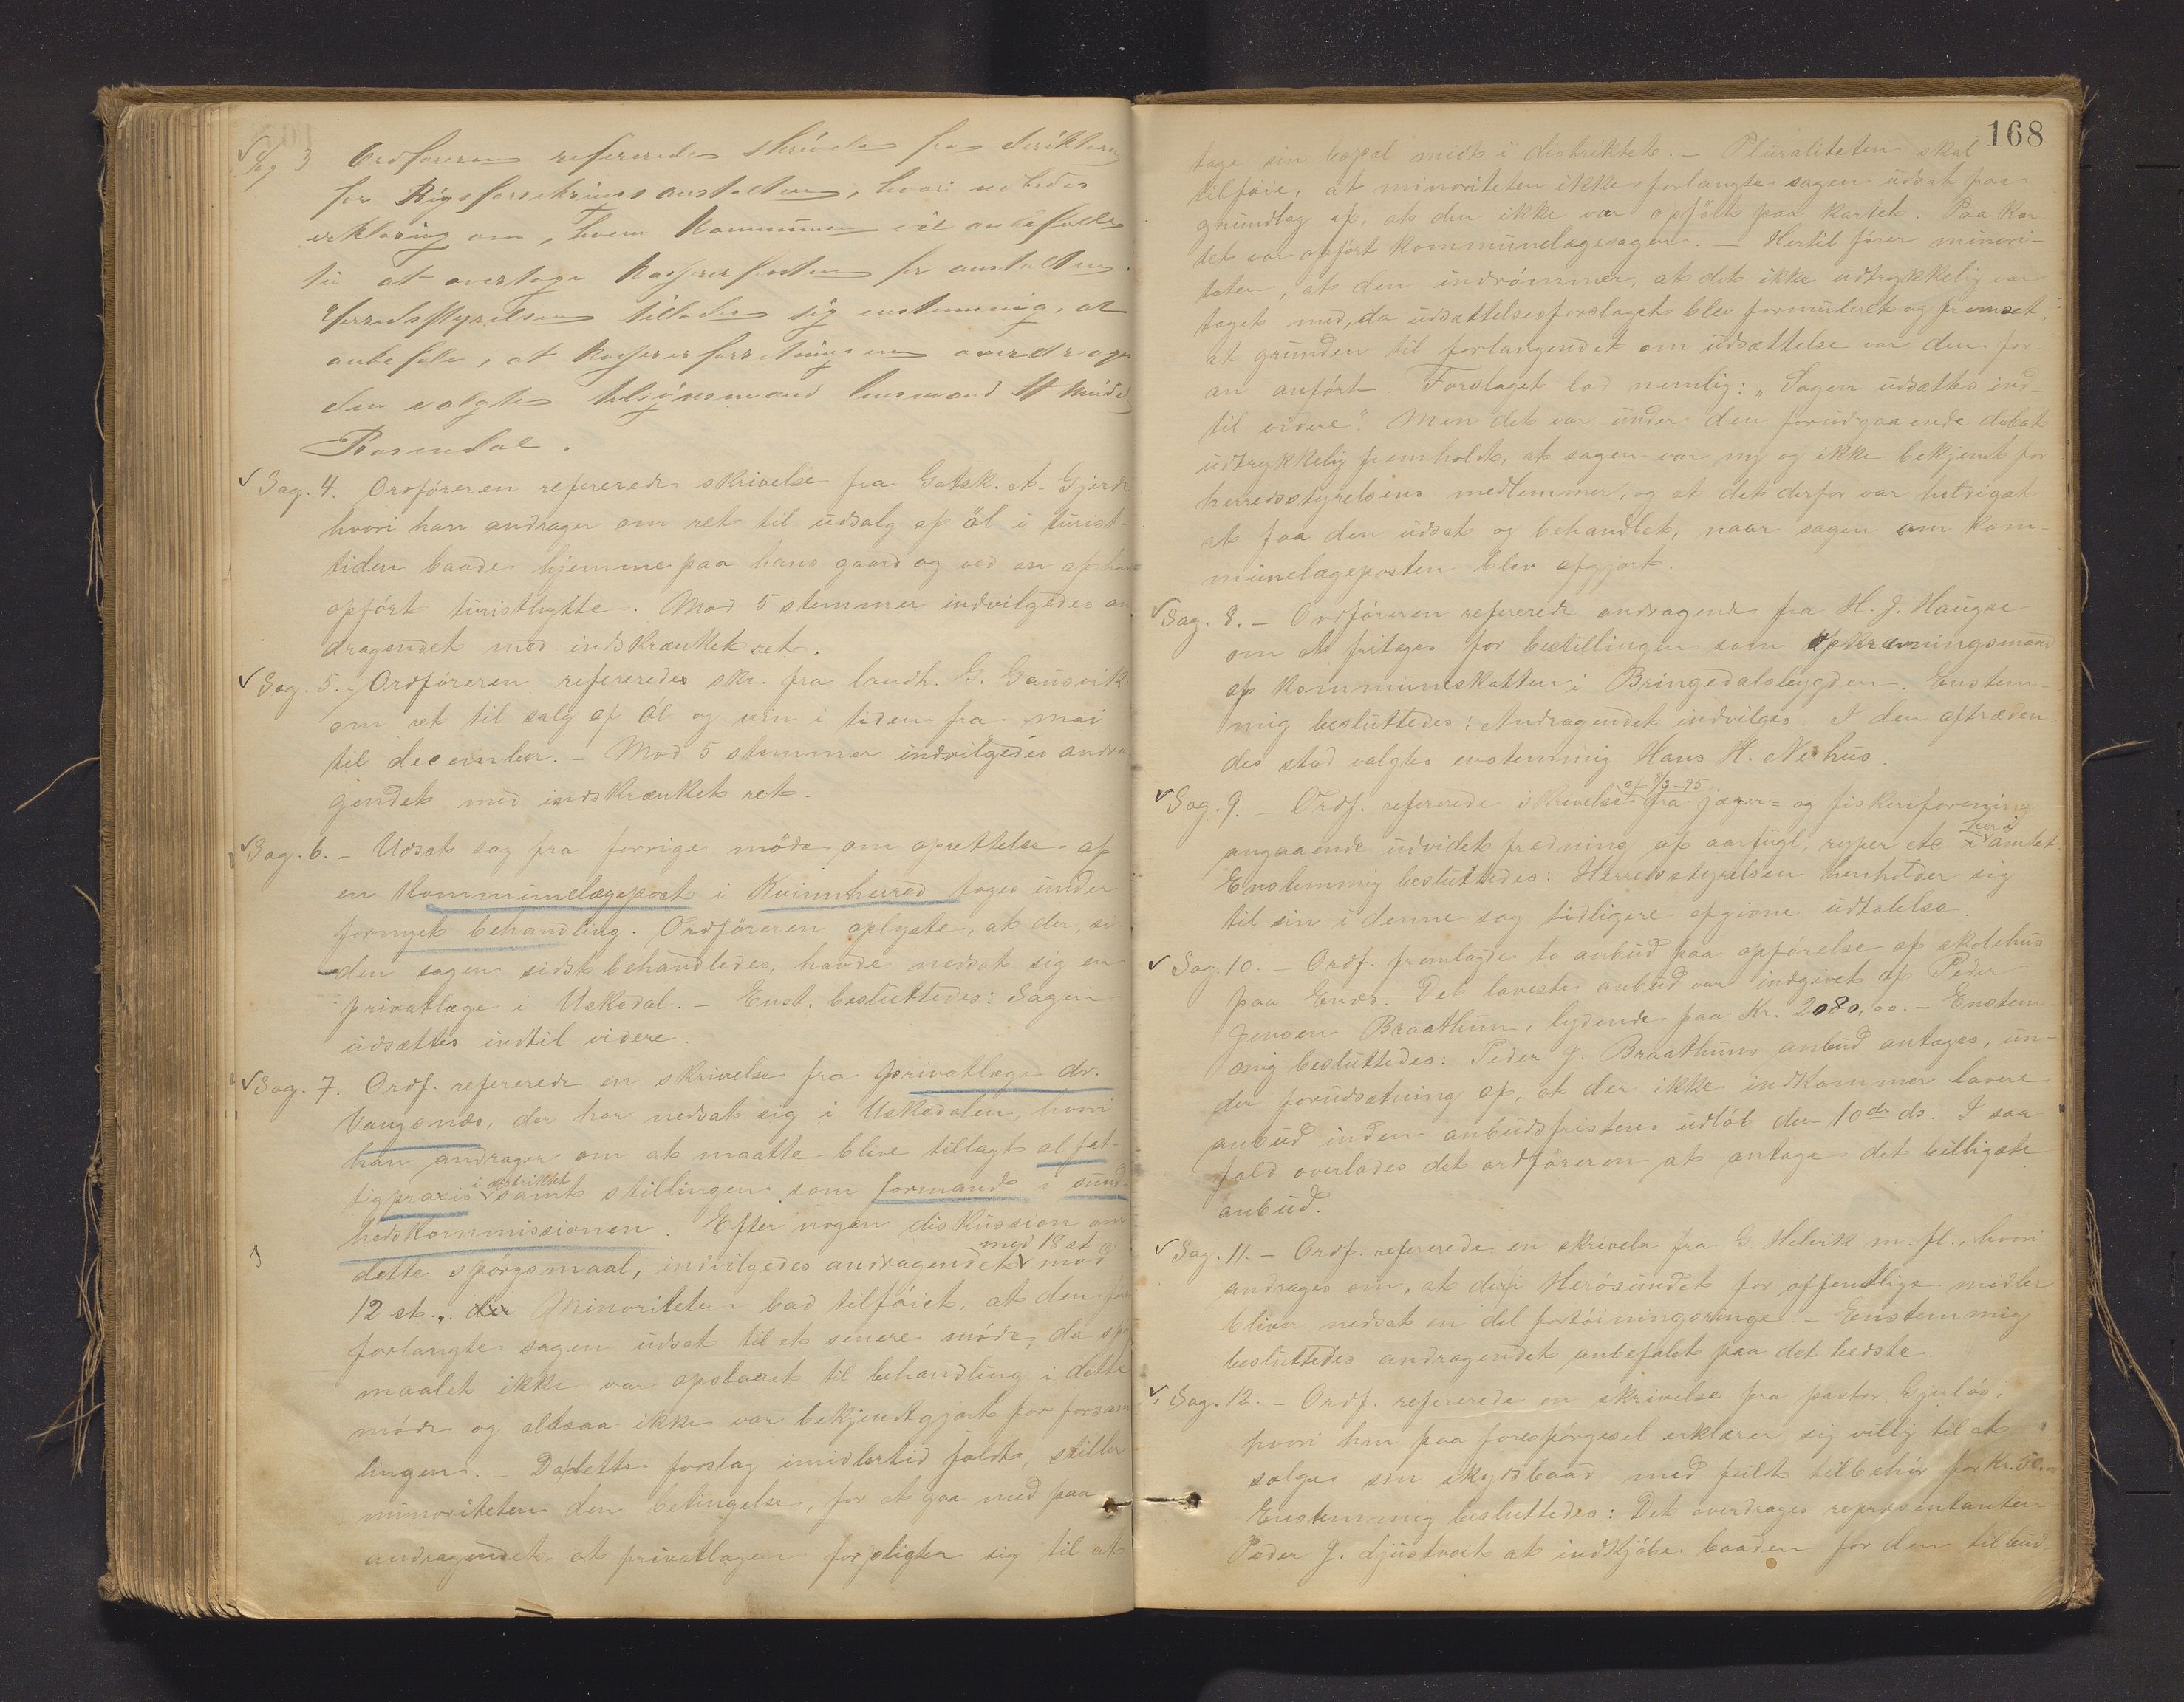 Sag 3 Ordføreren refererede skrivelse fra direktøren
for Rigsforsikringsanstalten, hvori udbedes
erklæring om, hvem Kommunen vil anbefale
til at overtage Kasserer posten for anstalten.
Herredsstyrelsen tillader sig enstemmig, at
anbefale, at Kassererforretningerne overdrages
den valgte tilsynsmand lensmand
Rosendal.
Sag. 4. Ordføreren refererede skrivelse fra Gotsk. A. Gjerde
hvori han andrager om ret til udsalg af öl i turist-
tiden baade hjemme paa hans gaard og ved en af ham
opført turisthytte. Mod 5 stemmer indvilgedes an-
dragendet med indskrænket ret.
Sag. 5. Ordføreren refereredes skr. fra landh. G. Gausvik
om ret til salg af öl og vin i tiden fra mai
til december. - Mod 5 stemmer indvilgedes andra-
gendet med indskrænket ret.
Sag. 6. - Udsat sag fra forrige möde om oprettelse af
en Kommunelægepost i Kvinnherred toges under
fornyet behandling. Ordföreren oplyste, at der, si-
den sagen sidst behandledes, havde nedsat sig en
privatlæge i Uskedal. - Enst. besluttedes: Sagen
udsættes indtil videre.
Sag. 7. Ordf. refererede en skrivelse fra privatlæge dr.
Vangsnæs, der har nedsat sig i Uskedalen, hvori
han andrager om at maatte blive tillagt al fat-
tigpraxis i distriktet samt stillingen som formand i sund-
hedskommissionen. Efter nogen diskussion om
dette spörgsmaal, indvilgedes andragendet med 18 st mod
12 st. Minoriteten bad tilföiet, at den
forlangte sagen udsat til et senere möde, da spörgs-
maalet ikke var opslaaet til behandling i dette
möde og altsaa ikke var bekjendtgjort for forsam-
lingen. - Da dette forslag imidlertid faldt, stiller
minoriteten den betingelse, for at gaa med paa
andragendet, at privatlægen forpligter sig til at
168
tage sin bopæl midt i distriktet. - Pluraliteten skal
tilföie, at minoriteten ikke forlangte sagen udsat paa
grundlag af, at den ikke var opfört paa kartet. Paa kar-
tet var opfört kommunelægesagen. - Hertil föier minori-
teten, at den indrömmer, at det ikke udtrykkelig var
taget med, da udsættelsesforslaget blev formuleret og fremsat,
at grunden til forlangendet om udsættelse var den for-
an anfört. Forslaget lød nemlig: "Sagen udsættes ind-
til videre". Men det var under den forudgaaende debat
udtrykkelig fremholdt, at sagen var ny og ikke bekjendt for
herredsstyrelsens medlemmer, og at det derfor var heldigst
at faa den udsat og behandlet, naar sagen om kom-
munelægeposten blev afgjort.
Sag. 8. - Ordföreren refererede andragende fra H. J. Haugse
om at fritages for bestillingen som opkrævningsmand
af kommuneskatten i Bringedalsbygden. Enstem-
mig besluttedes: Andragendet indvilges. I den aftræden-
des sted valgtes enstemmig Hans H. Nerhus.
Sag. 9. - Ordf. refererede skrivelse af 8/3-95 fra jæger= og fiskeriforening
angaaende udvidet fredning af aarfugl, ryper etc. her i amtet.
Enstemmig besluttedes: Herredsstyrelsen henholder sig
til sin i denne sag tidligere afgivne udtalelse.
Sag. 10. - Ordf. fremlagde to anbud paa opförelse af skolehus
paa Enæs. Det laveste anbud var indgivet af Peder
Jensen Braathun, lydende paa Kr. 2080,00. - Enstem-
mig besluttedes: Peder J. Braathuns anbud antages, un-
der forudsætning af, at der ikke indkommer lavere
anbud inden anbudsfristens udlöb den 10de ds. I saa
fald overlades det ordföreren at antage det billigste
anbud.
Sag. 11. - Ordf. refererede en skrivelse fra G. Helvik m. fl., hvori
andrages om, at der i Herösundet for offentlige midler
bliver nedsat en del fortöiningsringe. - Enstemmig
besluttedes andragendet anbefalet paa det bedste.
Sag. 12. - Ordf. refererede en skrivelse fra pastor
hvori han paa forespörgsel erklærer sig villig til at
sælge sin skydsbaad med fuldt tilbehör for Kr. 50.00
Enstemmig besluttedes: Det overdrages repræsentanten
Peder J. Ljustveit at indkjöbe baaden for den tilbud-